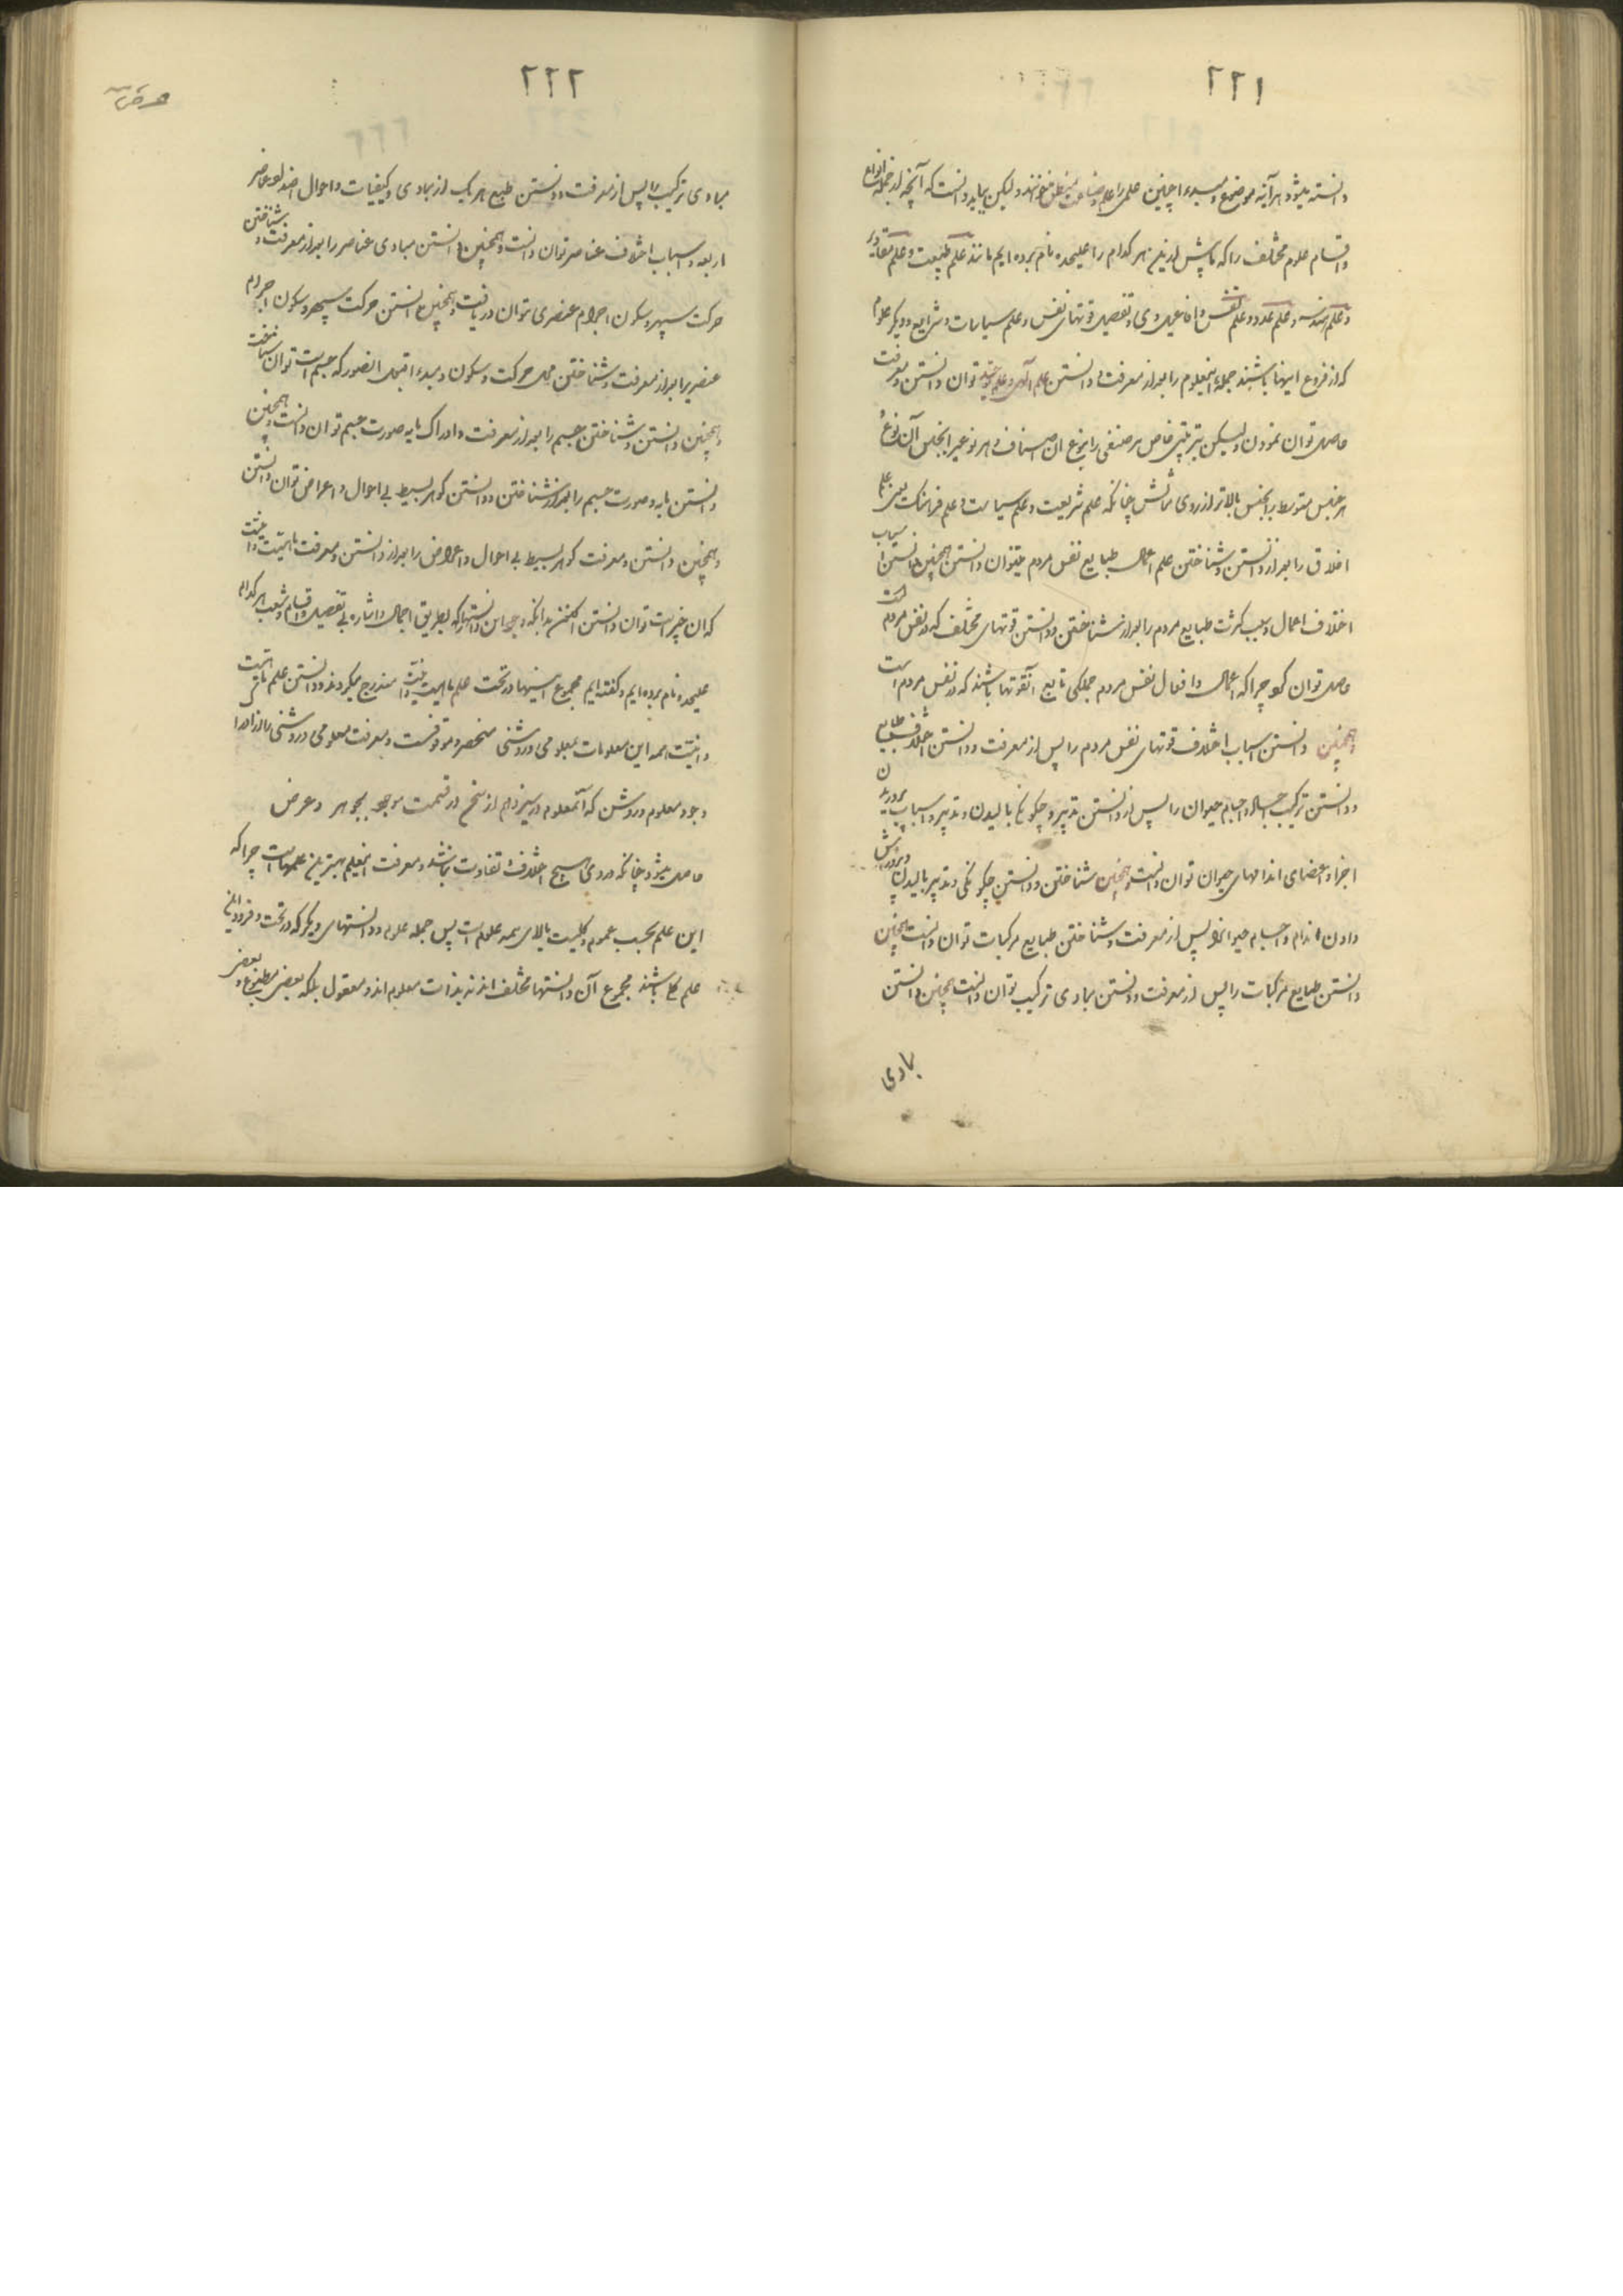 ۲۲۱
دانسته میشود هر آینه موضوع و مبدء اچنین علمی را علم و صناعت منطق خوانند ولیکن بباید دانست که آنچه از جمله انواع
و اقسام علوم مختلف را که ما پیش ازین هر کدام را علیحده نام برده ایم مانند علم طبیعت و علم مقادیر
و علم هندسه و علم عدد و علم نفس و افاعیل وی و تفصیل قوتهای نفس و علم سیاسات و شرایع و دیگر علوم
که از فروع اینها باشند جمله اینعلوم را بعد از معرفت و دانستن علم آلهی و علم توان دانستن و معرفت
حاصل توان نمودن ولیکن بترتیبی خاص هر صنفی را بنوع آن اصناف و هر نوعیرا بجنس آن نوع و
هر جنس متوسط را بجنس بالاتر از روی شناسش چنانکه علم شریعت و علم سیاست و علم فرهنگ یعنی علم
اخلاق را بعد از دانستن و شناختن علم اعمال طبایع نفس مردم میتوان دانستن همچنین دانستن اسباب
اختلاف اعمال و سبب کثرت طبایع مردم را بعد از شناختن و دانستن قوتهای مختلف که در نفس مردم است
حاصل توان کرد چرا که اعمال و افعال نفس مردم جملگی تابع آنقوتها باشند که در نفس مردم است
و همچنین دانستن اسباب اختلاف قوتهای نفس مردم را پس از معرفت و دانستن اختلاف طبایع
و دانستن ترکیب اجسام حیوان را پس از دانستن تدبیر و چگونگی بالیدن و تدبیر و اسباب پروریدن
اجزا و اعضای اندامهای حیوان توان دانست و همچنین شناختن و دانستن چگونگی و تدبیر بالیدن و پرورش
دادن اندام و اجسام حیوانرا پس از معرفت و شناختن طبایع مرکبات توان دانست همچنین
دانستن طبایع مرکبات را پس از معرفت و دانستن مبادی ترکیب توان دانست همچنین دانستن
مبادی
۲۲۲
مبادی ترکیب را پس از معرفت و دانستن طبع هر یک از مبادی و کیفیات و احوال اضداد عناصر
اربعه و اسباب اختلاف عناصر توان دانست و همچنین دانستن مبادی عناصر را بعد از معرفت و شناختن
حرکت سپهر و سکون اجرام عنصری توان دریافت و همچنین دانستن حرکت سپهر و سکون اجرام
عنصریرا بعد از معرفت و شناختن محل حرکت و سکون و مبدء اقبل انصور که جسم است توان شناخت
و همچنین دانستن و شناختن جسم را بعد از معرفت و ادراک مایه صورت جسم توان دانست و همچنین
دانستن مایه و صورت جسم را بعد از شناختن و دانستن گوهر بسیط بی احوال و اعراض توان دانستن
و همچنین دانستن و معرفت گوهر بسیط بی احوال و اعراض را بعد از دانستن و معرفت ماهیت و انیت
که آن چیز است توان دانستن اکنون بدانکه وجود این دانشها که بطریق اجمال و اشاره بی تفصیل و اقسام و شعب هر کدام
علیحده نام برده ایم و گفته ایم مجموع اینها در تحت علم ماهیت و انیت مندرج میگردند و دانستن علم ماهیت
و انیت همه این معلومات بمعلومی و روشنی منحصر و موقوفست و معرفت معلومی و روشنی
وجود معلوم و روشن که آنمعلوم در سیزدهم از سخن در قسمت موجود بجوهر و عرض
حاصل میشود چنانکه در وی هیچ اختلاف و تفاوت نباشد و معرفت اینعلم بهترین علمهاست چرا که
این علم بحسب عموم و کلیت بالای همه علوم است پس جمله علوم و دانستهای دیگر که در تحت و فرود این
علم کلی باشند مجموع آن دانستها مختلف اند نه بذات معلوم اند و معقول بلکه بعضی مطبوع و بعضی